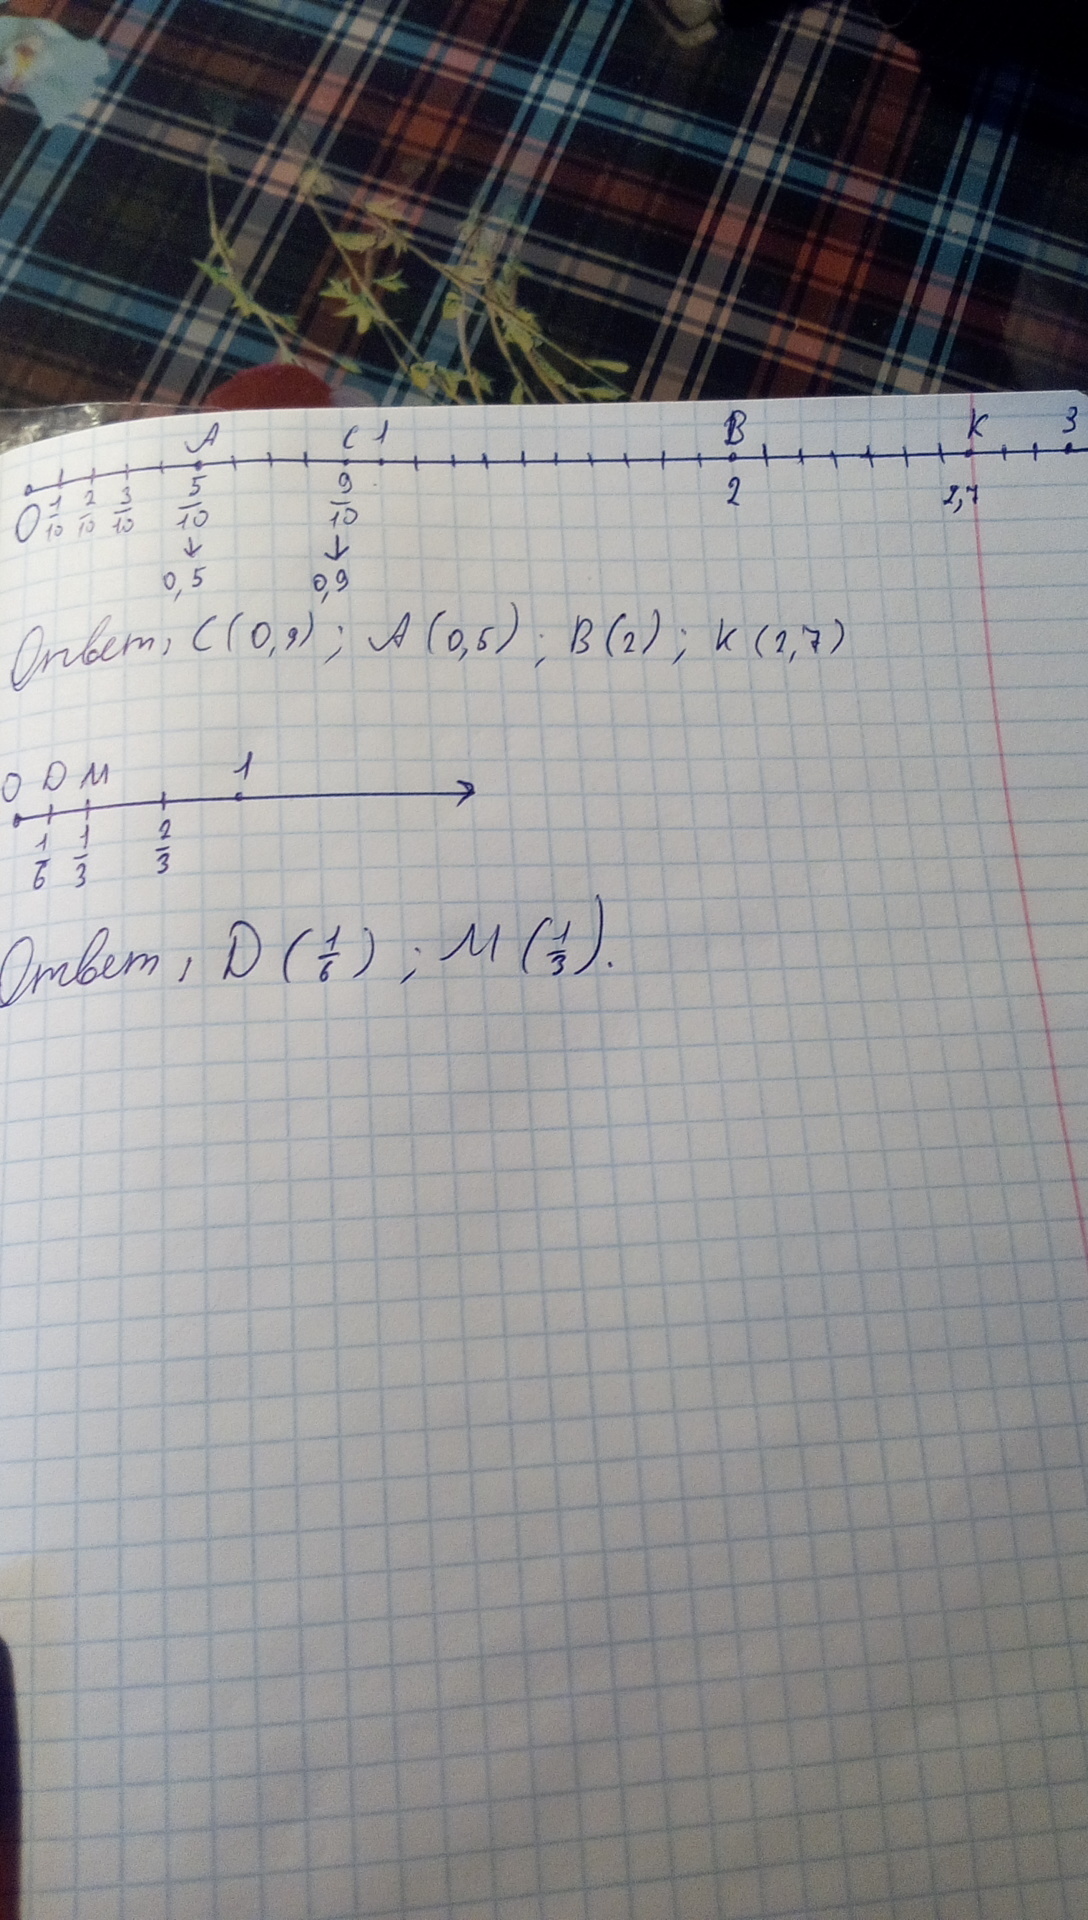 A C 1 B K 3
O 1/10 2/10 3/10 5/10 9/10 2 2,7
↓ ↓
0,5 0,9
Ответ, C(0,9); A(0,5); B(2); K(2,7)
O D M 1
1/6 1/3 2/3
Ответ, D(1/6); M(1/3).